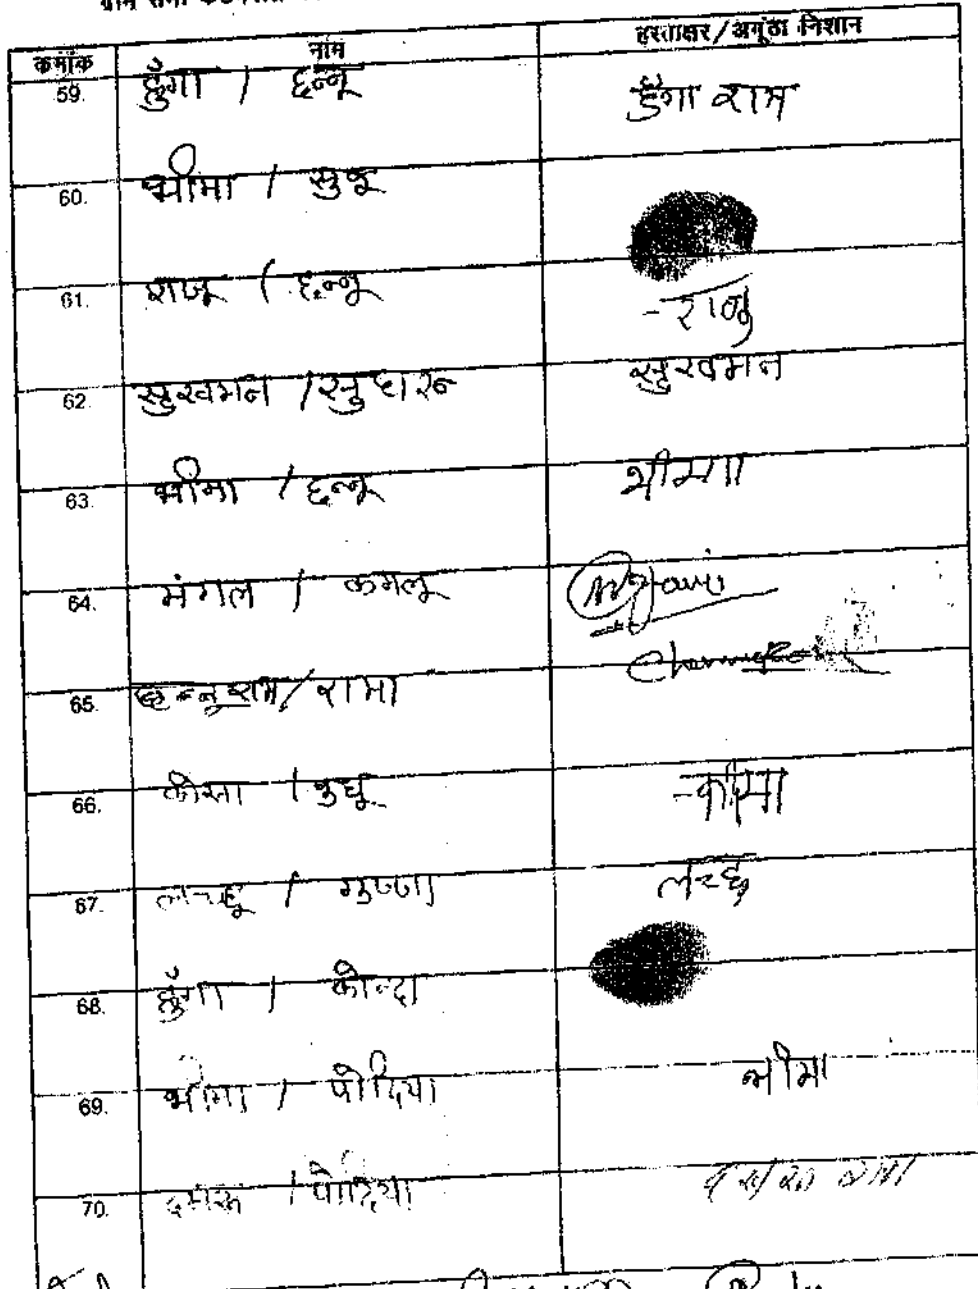 ग्राम सभा
कमाँक नाम हस्ताक्षर/अगूंठा निशान
59. हुँगा / छन्नू हुँगा राम
60. भीमा / सुकू
61. राजू / छन्नू राजु
62. सुखमन / सुधरन सुखमन
63. भीमा / छन्नू भीमा
64. मंगल / कमलू
65. छन्नू राम / रामा
66. कोसा / बुधू
67. लच्छू / गुज्जा लच्छु
68. हुँगा / कोन्दा
69. भीमा / पोदिया भीमा
70. / पोदिया